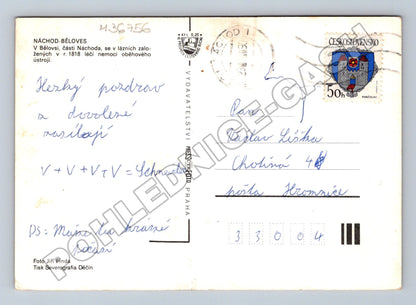 H36756
NÁCHOD-BĚLOVES
V Bělovsi, části Náchoda, se v lázních zalo-
žených v r. 1818 léčí nemoci oběhového
ústrojí.
Hezký pozdrav
z dovolené
zasílají
V + V + V + V =
PS:
Foto Jiří
Tisk Severografia Děčín
VYDAVATELSTVÍ
PRAHA
ČESKOSLOVENSKO
50h
Pan
Václav Liška
Chotiná 4
pošta Hromnice
3 3 0 0 4
POHLEDNICE-GASH